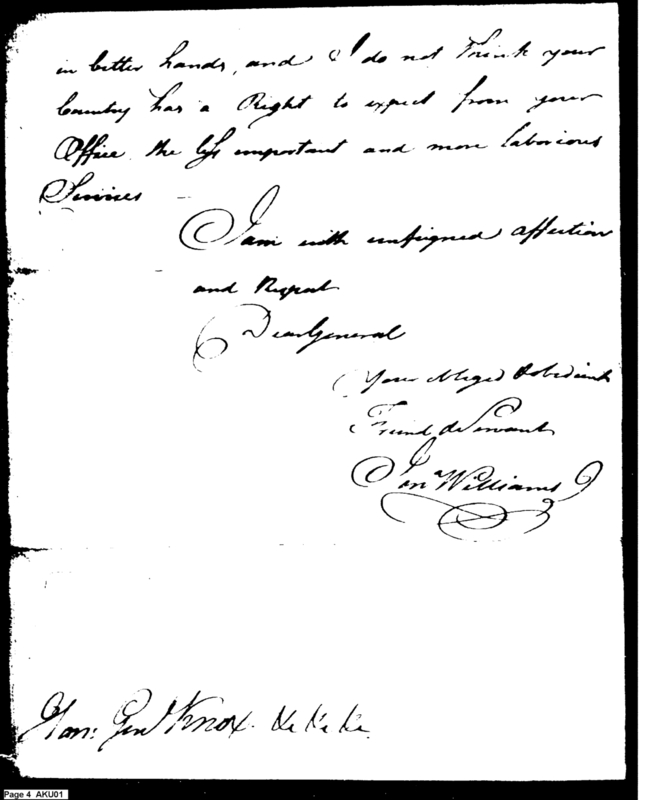 in better hands, and I do not Think your
Country has a Right to expect from your
Office the less important and more laborious
Services
I am with unfeigned affection
and Respect
Dear General
Your obliged & obedient
Friend & Servant
Jon.ª Williams
Hon: Gen.l Knox. &c &c &c.
Page 4 AKU01